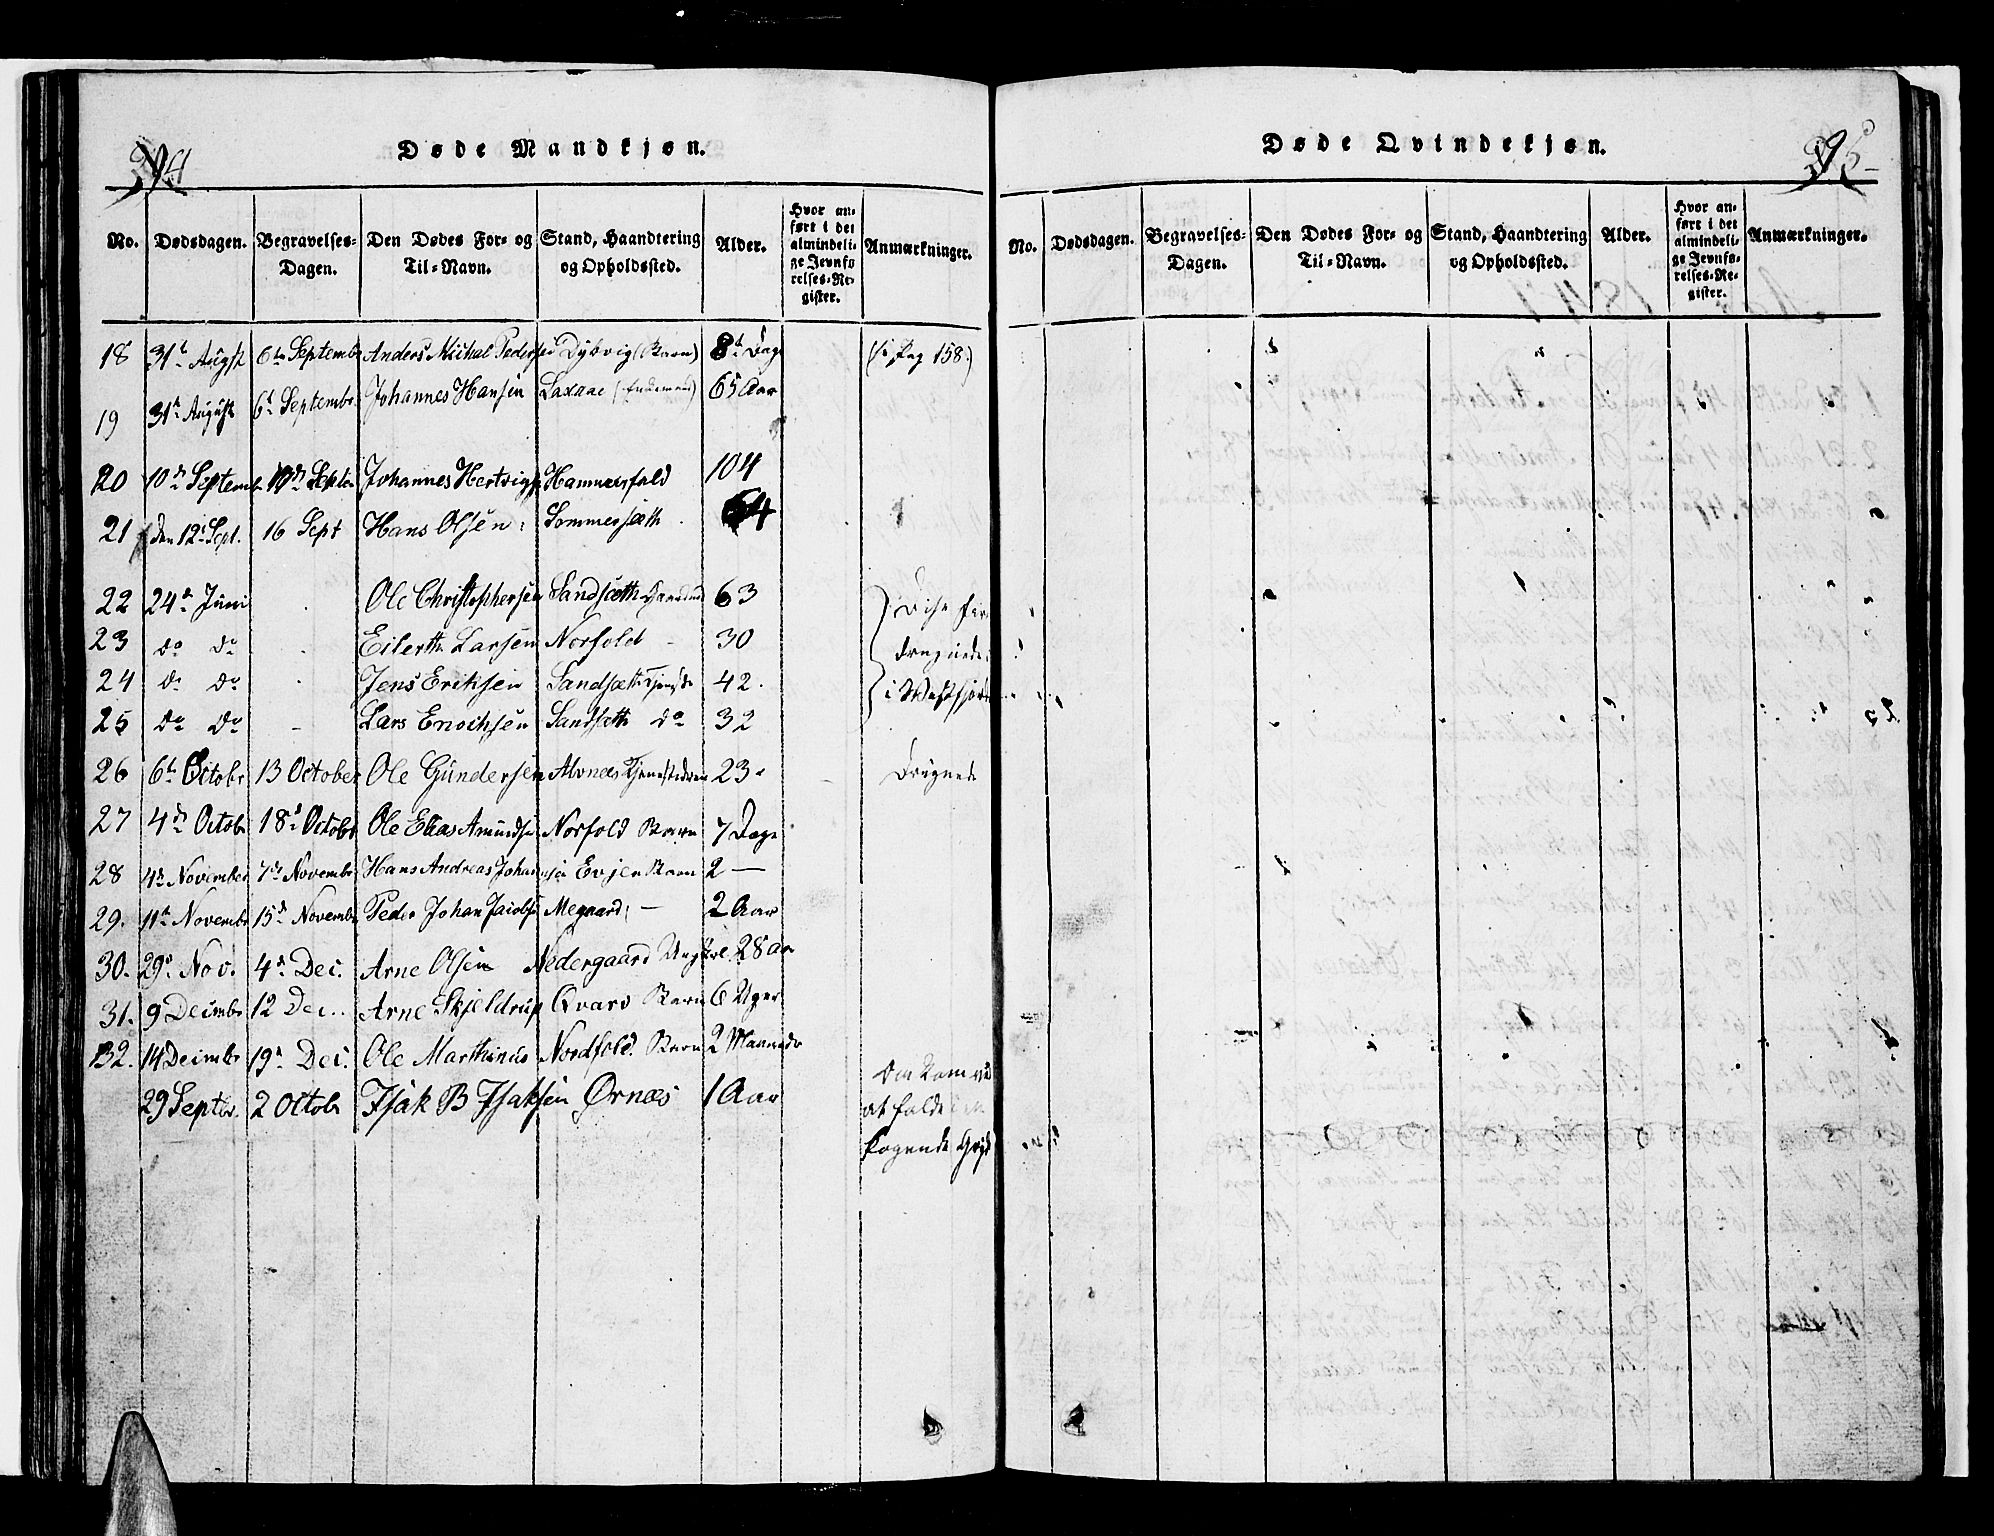 Døde Mandkjøn.
No. Dødsdagen. Begravelses-Dagen. Den Dødes For- og Til-Navn. Stand, Haandtering og Opholdssted. Alder. Hvor anført i det almindelige Jevnførelses-Register. Anmærkninger.
18 31te Augst 6te Septembr Anders Mikal Pedersen Dybvig (Barn) 8te Dage (s. Pag 158.)
19 31te August 6te Septembr. Johannes Hansen Laxaae 65 Aar
20 10de Septembr Septbr Johannes Hertvigs Hammersfald 104
21 den 12te Sept. 16 Sept Hans Olsen Sommersæth 64
22 24de Juni Ole Christophersen Sandsæth 63 Disse
23 do do Eilerth Larsen Norfold - 30 druknede
24 do do Jens Eriksen Sandsæth 42. i Westfjorden
25 do do - Lars Enochsen Sandsæth do 32
26 6te Octobr 13 October Ole Gundersen Alvnæs Tjenestedreng 23 Druknede
27 4de Octobr 18de Octobr Ole Elias Amundsen Norfold Barn 7 Dage
28 4de November 7de Novembr Hans Andreas Johannsen Evjen Barn 2 —
29. 11te Novembr 15de Novembr Peder Johan Jacobsen Megaard — 2 Aar
30. 29de Nov. 4de Dec. Arne Olsen Nedergaard Ungkrl. 28 aar
31. 9 Decembr 12 Dec. Arne Skjeldrup Qvarv Barn 6 Uger
32. 14 Decembr 19de Dec. Ole Marthinus Nordfold. Barn 2 Maaneder
29 Septbr. 2 Octobr Isak B Isaksen Ørnæs 1 Aar Omkom ved
at falde
kogende
Døde Qvindekjøn.
No. Dødsdagen. Begravelses-Dagen. Den Dødes For- og Til-Navn. Stand, Haandtering og Opholdssted. Alder. Hvor anført i det almindelige Jevnførelses-Register. Anmærkninger.